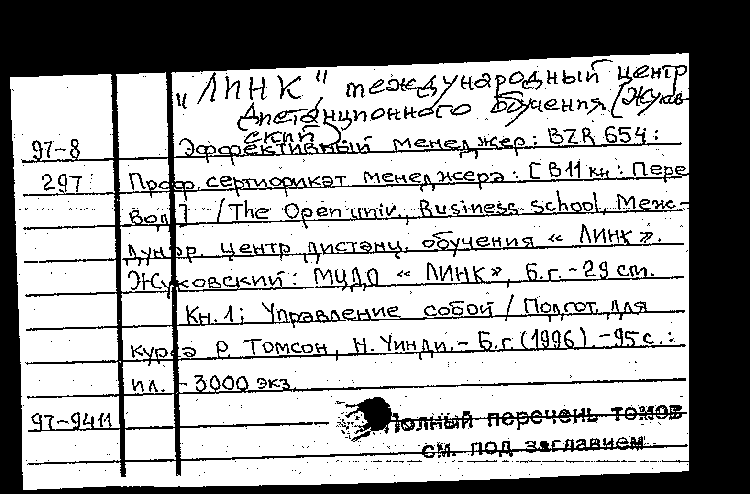 "ЛИНК" международный центр
дистанционного обучения (Жуков-
ский)
97-8 Эффективный менеджер: BZR 654:
297 Проф. сертификат менеджера: [В 11 кн.: Пере
вод] / The Open univ., Business school, Меж-
дунар. центр дистанц. обучения « ЛИНК ».
Жуковский: МЦДО « ЛИНК », Б.г. - 29 см.
Кн. 1; Управление собой / Подгот. для
курса Р. Томсон, Н. Уинди. - Б.г. (1996). - 95 с.:
ил. - 3000 экз.
97-9411 Полный перечень томов
см. под заглавием